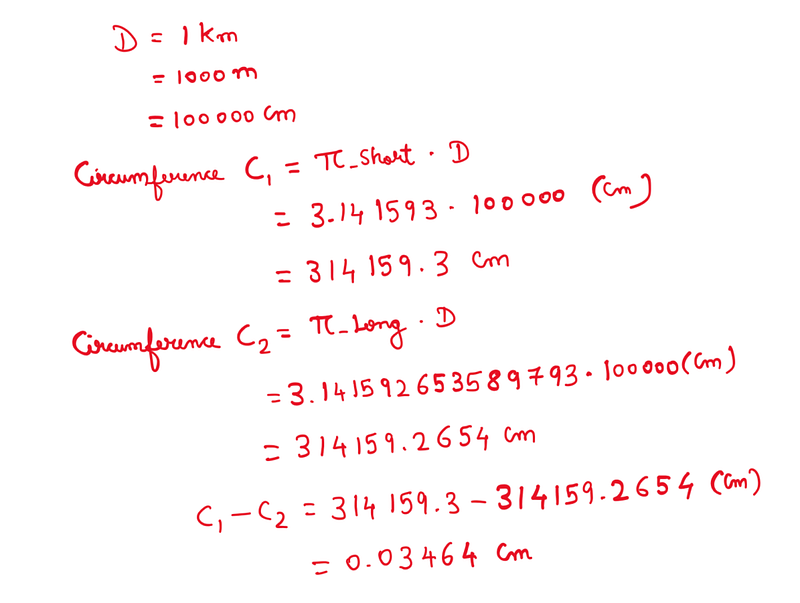 D = 1 km
= 1000 m
= 100000 cm
Circumference C₁ = π_short · D
= 3.141593 · 100000 (cm)
= 314159.3 cm
Circumference C₂ = π_Long · D
= 3.141592653589793 · 100000 (cm)
= 314159.2654 cm
C₁ - C₂ = 314159.3 - 314159.2654 (cm)
= 0.03464 cm